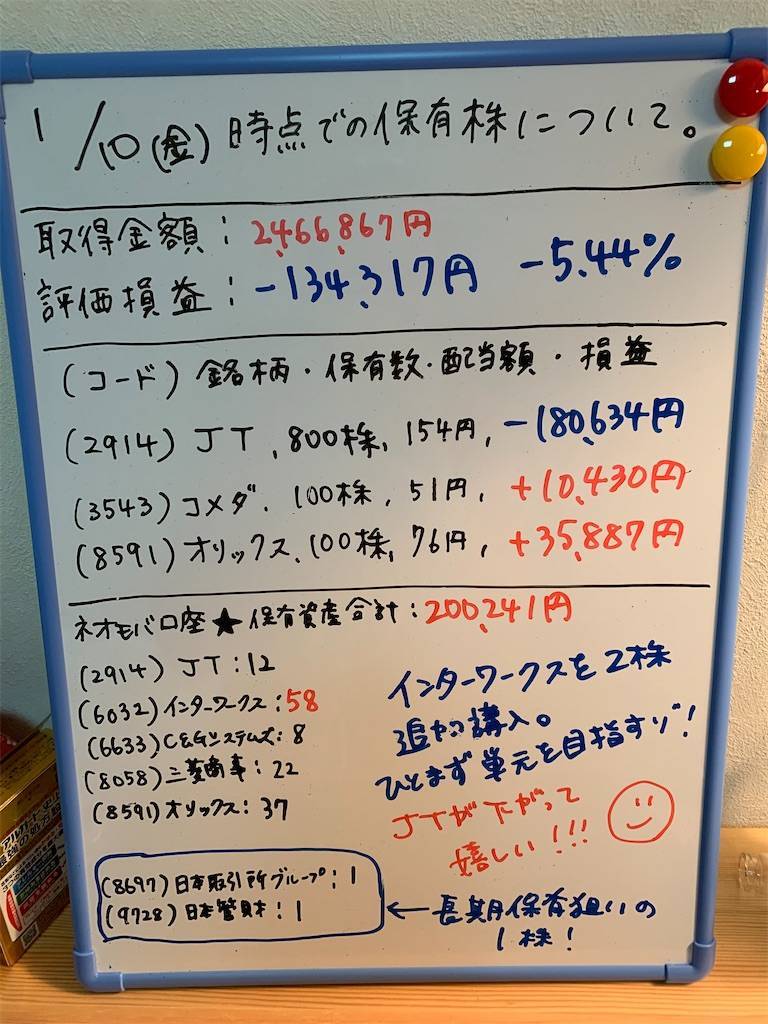 1/10(金)時点での保有株について。
取得金額：2,466,867円
評価損益：-134,317円 -5.44%
(コード)銘柄・保有数・配当額・損益
(2914)JT、800株、154円、-180,634円
(3543)コメダ、100株、51円、+10,430円
(8591)オリックス、100株、76円、+35,887円
ネオモバ口座★保有資産合計：200,241円
(2914)JT：12
(6032)インターワークス：58
(6633)C&Gシステムズ：8
(8058)三菱商事：22
(8591)オリックス：37
インターワークスを2株
追加購入。
ひとまず単元を目指すゾ！
JTが下がって
嬉しい!!!
(8697)日本取引所グループ：1
(9728)日本管財：1
←長期保有狙いの
1株！